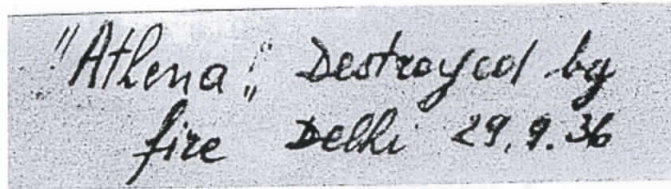 "Athena", Destroyed by
fire Delhi 29.9.36